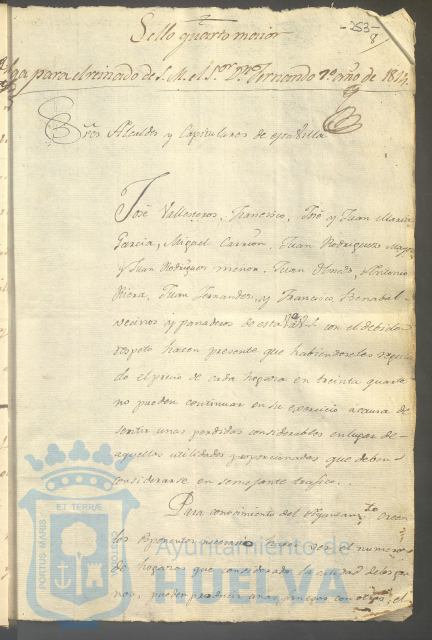 -253-
8
Sello quarto maior
Valga para el reinado de S. M. el Sor. Dn. Fernando 7º año de 1814.
Sres. Alcaldes y Capitulares de esta Villa
José Valleseros, Francisco, José y Juan Maria
Garcia, Miguel Carrion, Juan Rodriguez Mayor
y Juan Rodriguez menor, Juan Olmedo, Antonio
Riera, Juan Fernandez, y Francisco Benabal
vecinos y panaderos de esta Va. con el debido
respeto hacen presente que habiendoseles regula
do el precio de cada hogaza en treinta quartos
no pueden continuar en su exercicio a causa de
sentir unas perdidas considerables en lugar de
aquellas utilidades proporcionadas que deben
considerarse en semejante trafico.
Para conocimiento del Ayuntamto. creen
los exponentes necesario tener el numero
de hogazas que considerada la calidad de los gra
nos, pueden producir unas con otras, el
PORTUS MARIS ET TERRAE CUSTODIA
Ayuntamiento de
HUELVA